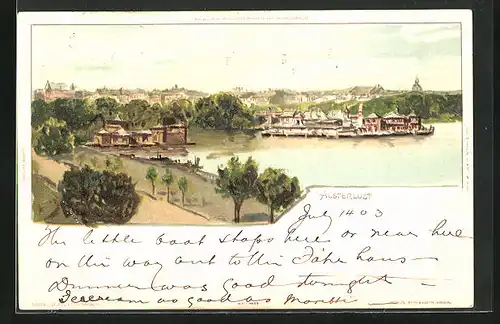 ALSTERLUST
July 1403
The little boat stops here or near here
on the way out to the Fähr haus –
Dinner was good tonight –
Icecream as good as